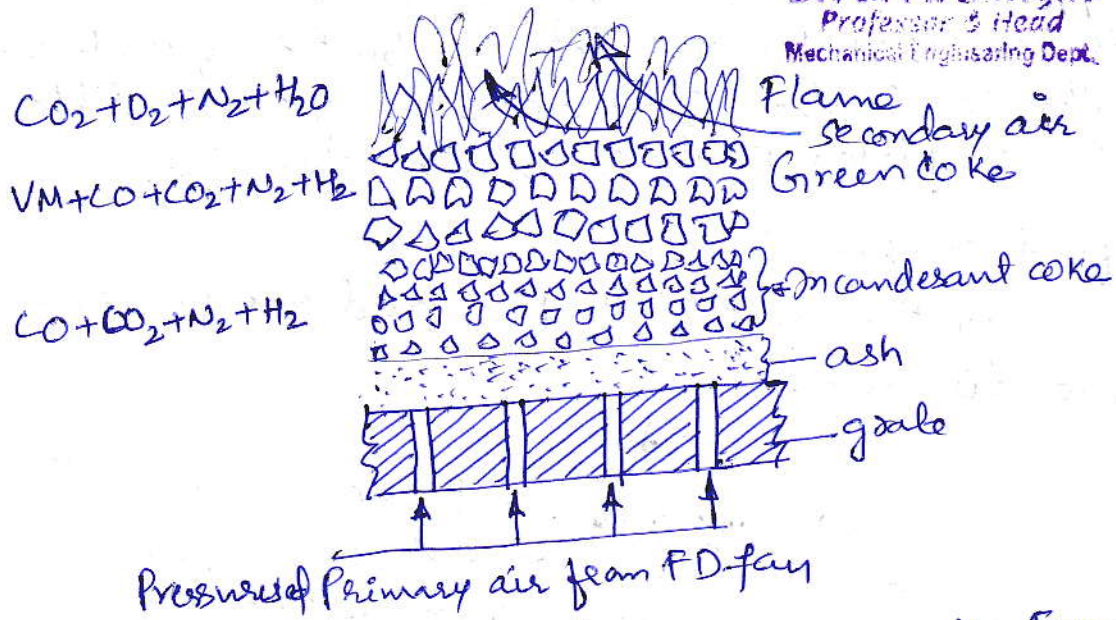 Professor & Head
Mechanical Engineering Dept.
CO2+O2+N2+H2O
Flame
secondary air
VM+CO+CO2+N2+H2
Green coke
CO+CO2+N2+H2
Incandesant coke
ash
grate
Pressurised Primary air from FD fan